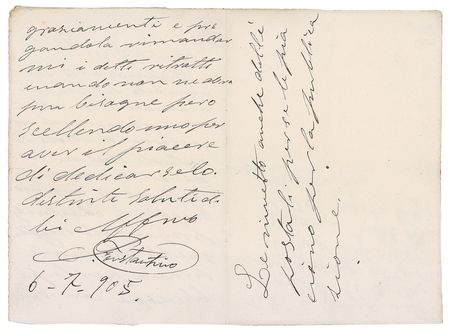 graziamenti e pre
gandola rimandar
mi i detti ritratti
quando non ne avra
piu bisogno pero
scellendo uno per
aver il piacere
di dedicarselo.
distinti saluti d.
lei Affmo
Constantino
6-7-905.
Le rimetto anche delle
postali per se le pia
ciono per la pubblica
zione.